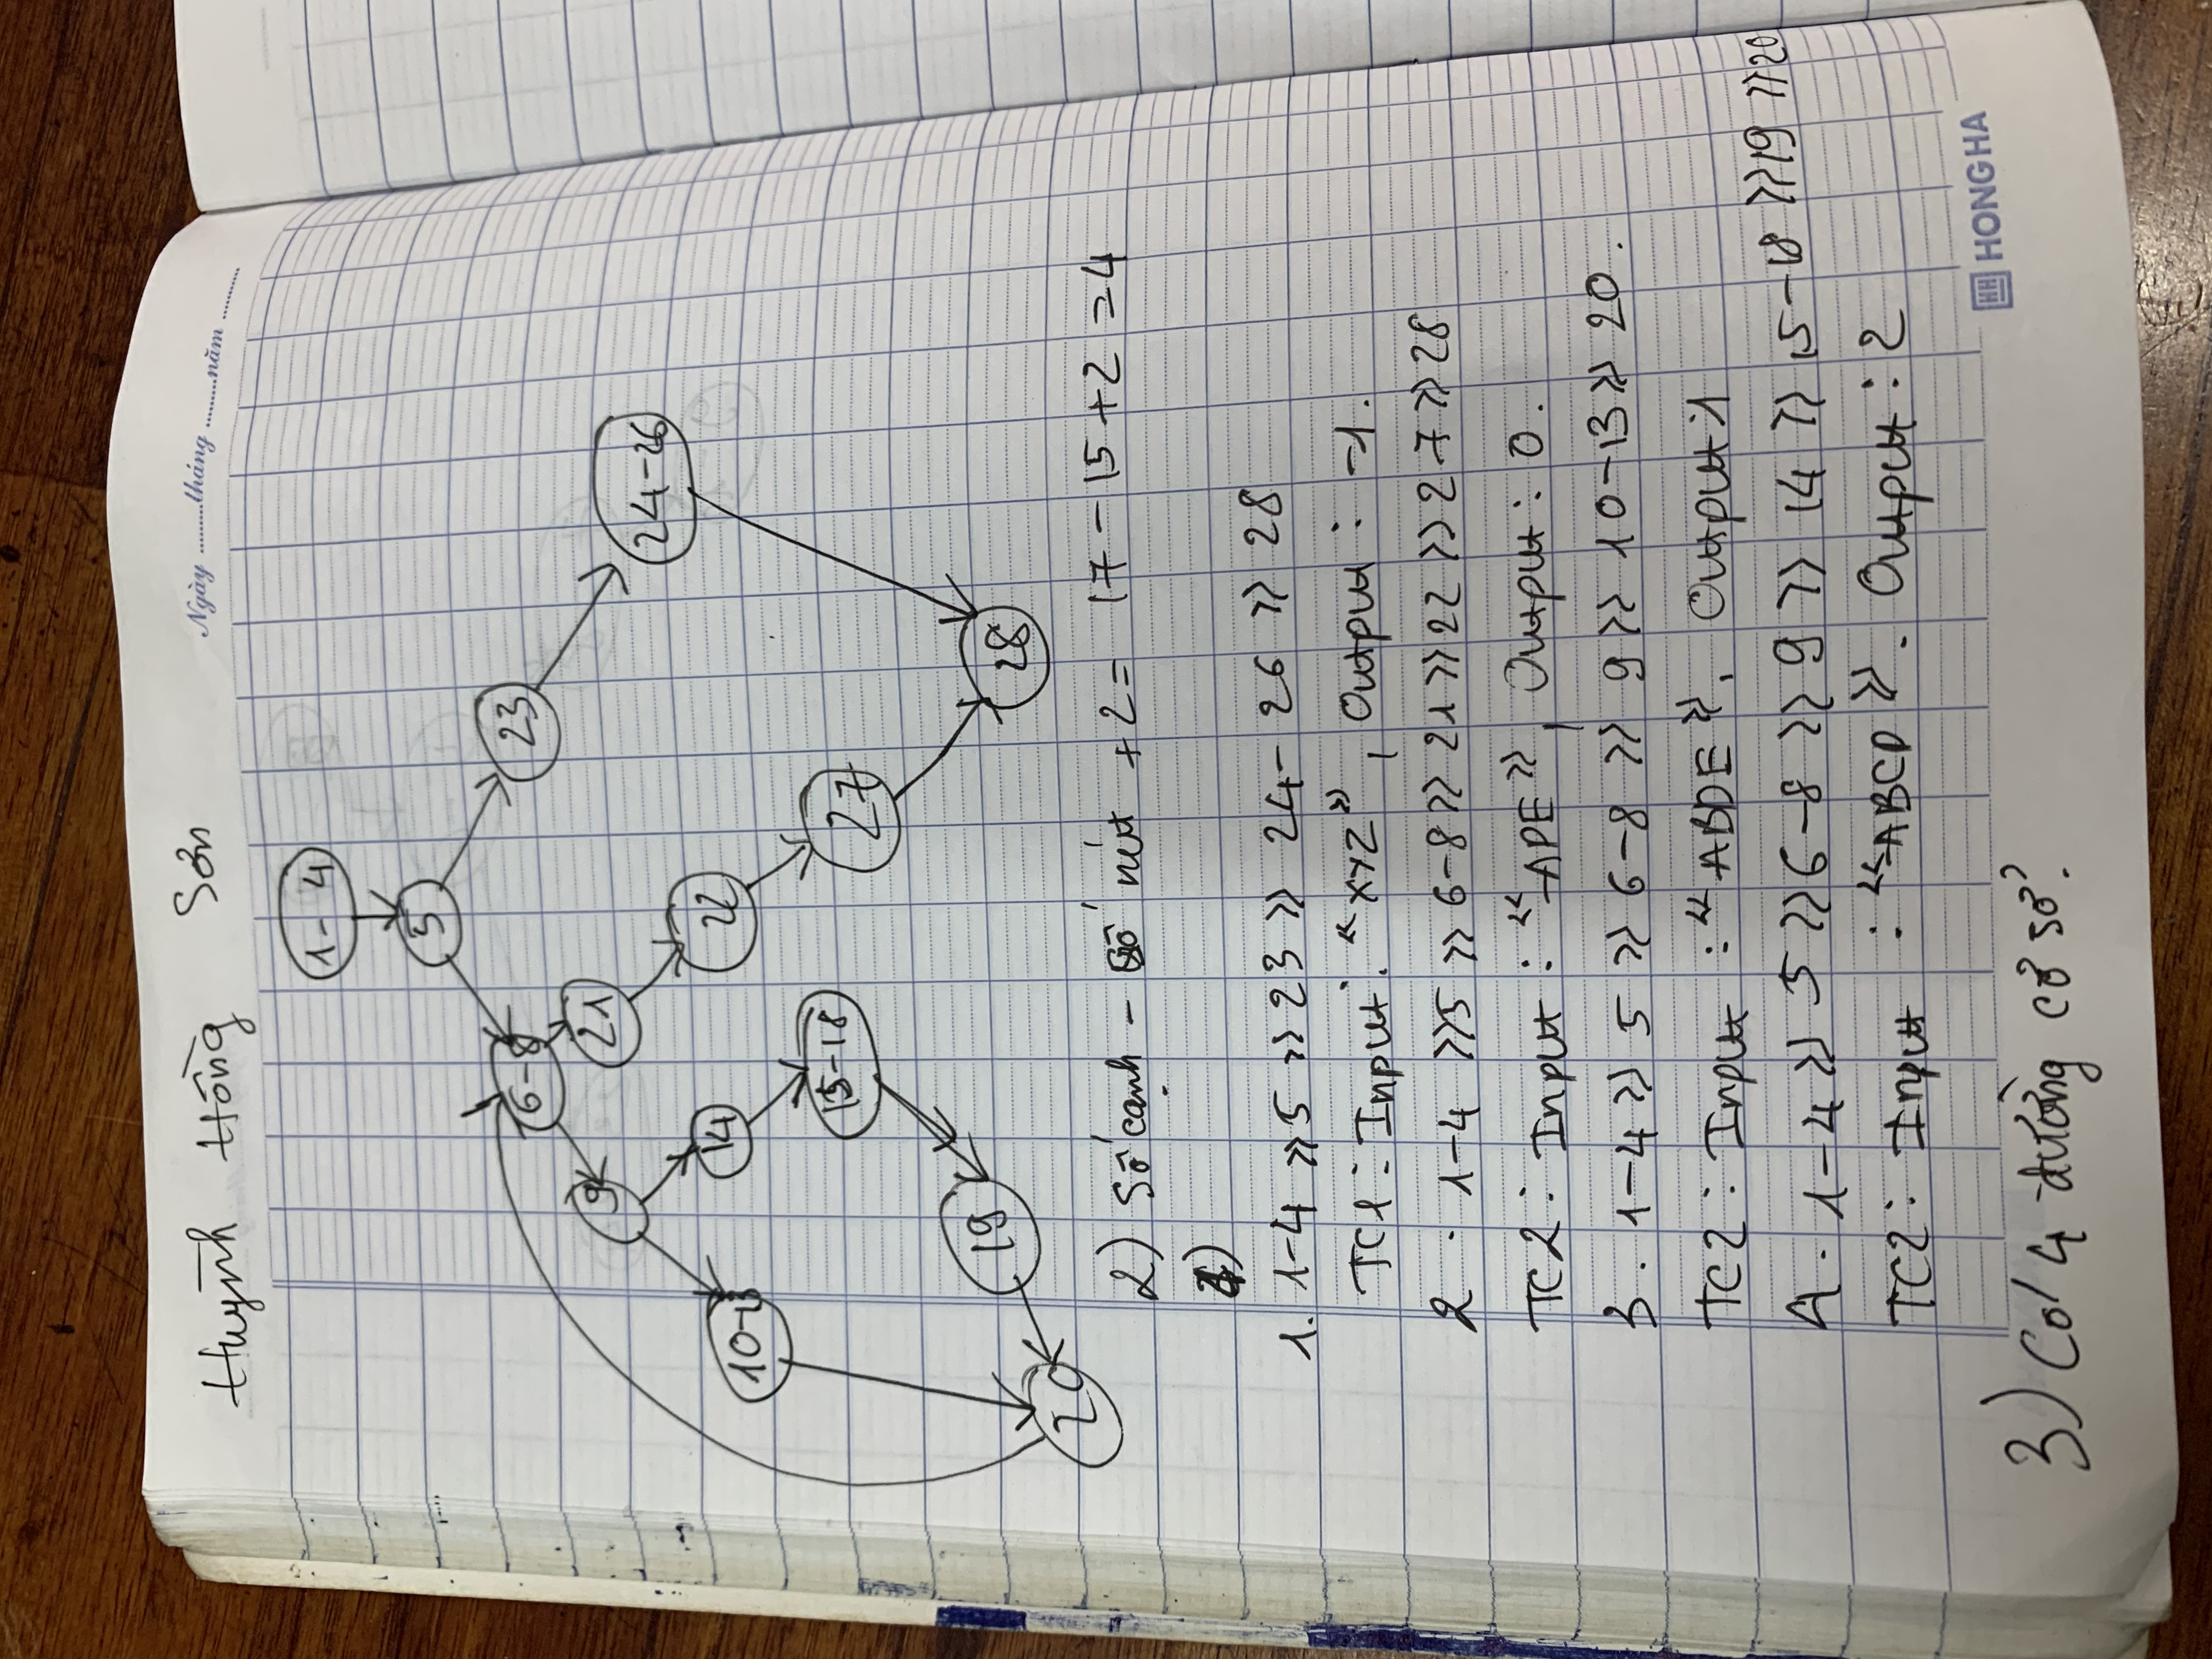 Huỳnh Hồng Sơn
Ngày ..........tháng .........năm ..........
1-4
5
6-8
23
9
21
24-26
10-13
14
22
15-18
27
19
28
20
2) Số cạnh - Số nút + 2 = 17 - 15 + 2 = 4
4)
1. 1-4 >> 5 >> 23 >> 24-26 >> 28
TC1: Input: "XYZ", Output: -1.
2. 1-4 >> 5 >> 6-8 >> 21 >> 22 >> 27 >> 28
TC2: Input: "APE", Output: 0.
3. 1-4 >> 5 >> 6-8 >> 9 >> 10-13 >> 20.
TC2: Input: "ABDE". Output: 1
4. 1-4 >> 5 >> 6-8 >> 9 >> 14 >> 15-18 >> 19 >> 20
TC2: Input: "ABCD". Output: 2
HH HONG HA
3) Có 4 đường cơ sở.